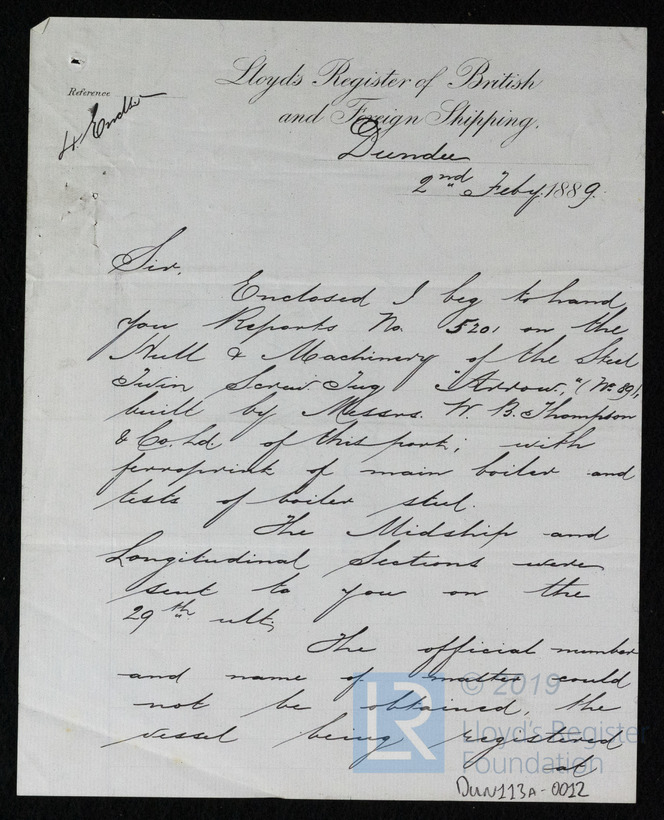 Lloyd's Register of British
and Foreign Shipping.
Reference
4 Encls
Dundee
2nd Feby. 1889.
Sir,
Enclosed I beg to hand
you Reports No. 5201 on the
Hull & Machinery of the Steel
Twin Screw Tug "Arrow," (No 89),
built by Messrs. W. B. Thompson
& Co. Ld. of this port; with
ferroprint of main boiler and
tests of boiler steel.
The Midship and
Longitudinal Sections were
sent to you on the
29th ulto
The official number
and name of master could
not be obtained, the
vessel being registered
at
© 2019
LR
Lloyd's Register
Foundation
DUN113A-0012